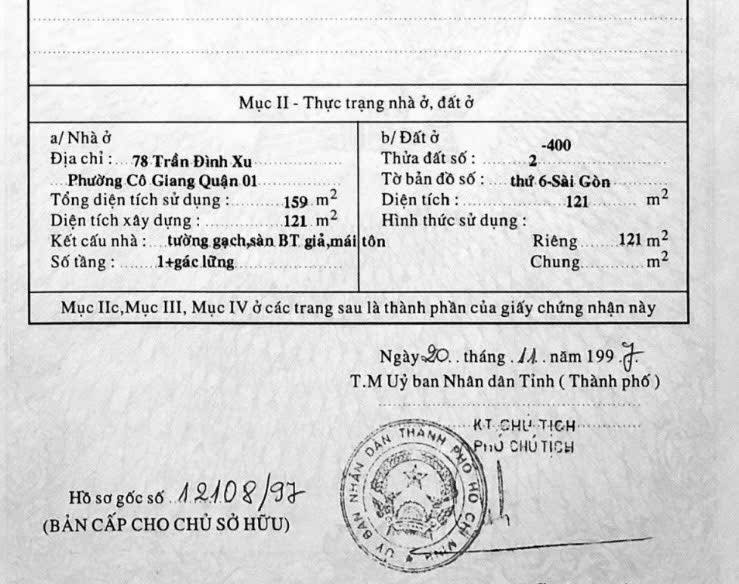 Mục II - Thực trạng nhà ở, đất ở
a/ Nhà ở
Địa chỉ : 78 Trần Đình Xu
Phường Cô Giang Quận 01
Tổng diện tích sử dụng : 159 m2
Diện tích xây dựng : 121 m2
Kết cấu nhà : tường gạch,sàn BT giả,mái tôn
Số tầng : 1+gác lững
b/ Đất ở
-400
Thửa đất số : 2
Tờ bản đồ số : thứ 6-Sài Gòn
Diện tích : 121 m2
Hình thức sử dụng :
Riêng 121 m2
Chung m2
Mục IIc,Mục III, Mục IV ở các trang sau là thành phần của giấy chứng nhận này
Ngày 20 tháng 11 năm 1997
T.M Uỷ ban Nhân dân Tỉnh ( Thành phố )
KT CHỦ TỊCH
PHÓ CHỦ TỊCH
ỦY BAN NHÂN DÂN THÀNH PHỐ HỒ CHÍ MINH
Hồ sơ gốc số 12108/97
(BẢN CẤP CHO CHỦ SỞ HỮU)